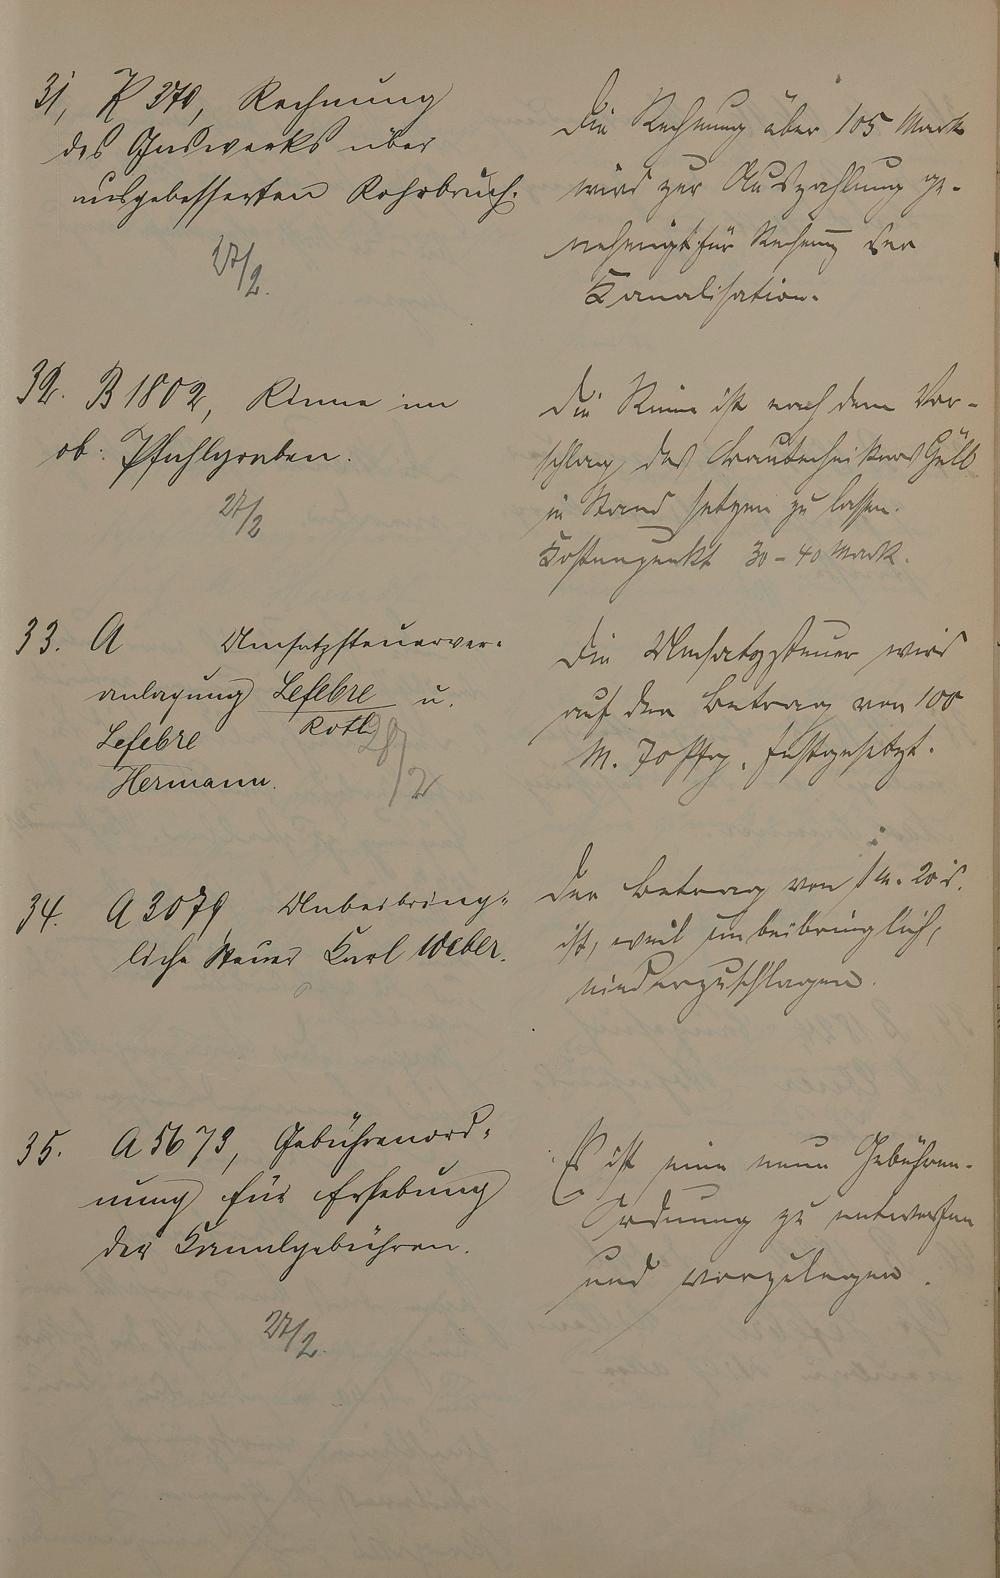 31, K 370, Rechnung
des Gaswerks über
ausgebesserten Rohrbruch.
27/2.
Die Rechnung über 105 Mark
wird zur Auszahlung ge-
nehmigt für Rechnung der
Kanalisation.
32. B 1802, Rinne im
ob. Pfuhlgraben.
27/2
Die Rinne ist nach dem Vor-
schlag des Bautechnikers
in Stand setzen zu lassen.
Kostenpunkt 30-40 Mark.
33. A Umsatzsteuerver-
anlagung Lefebre u.
Roth
Lefebre
Hermann.
28/2
Die Umsatzsteuer wird
auf den Betrag von 100
M. 70 Pfg. festgesetzt.
34. A 3079 Unbeibring-
liche Steuer Karl Weber.
Der Betrag von 1 M. 20 S.
ist, weil unbeibringlich,
niederzuschlagen.
35. A 5673, Gebührenord-
nung für Erhebung
der Kanalgebühren.
27/2.
Es ist eine neue Gebühren-
Ordnung zu entwerfen
und vorzulegen.